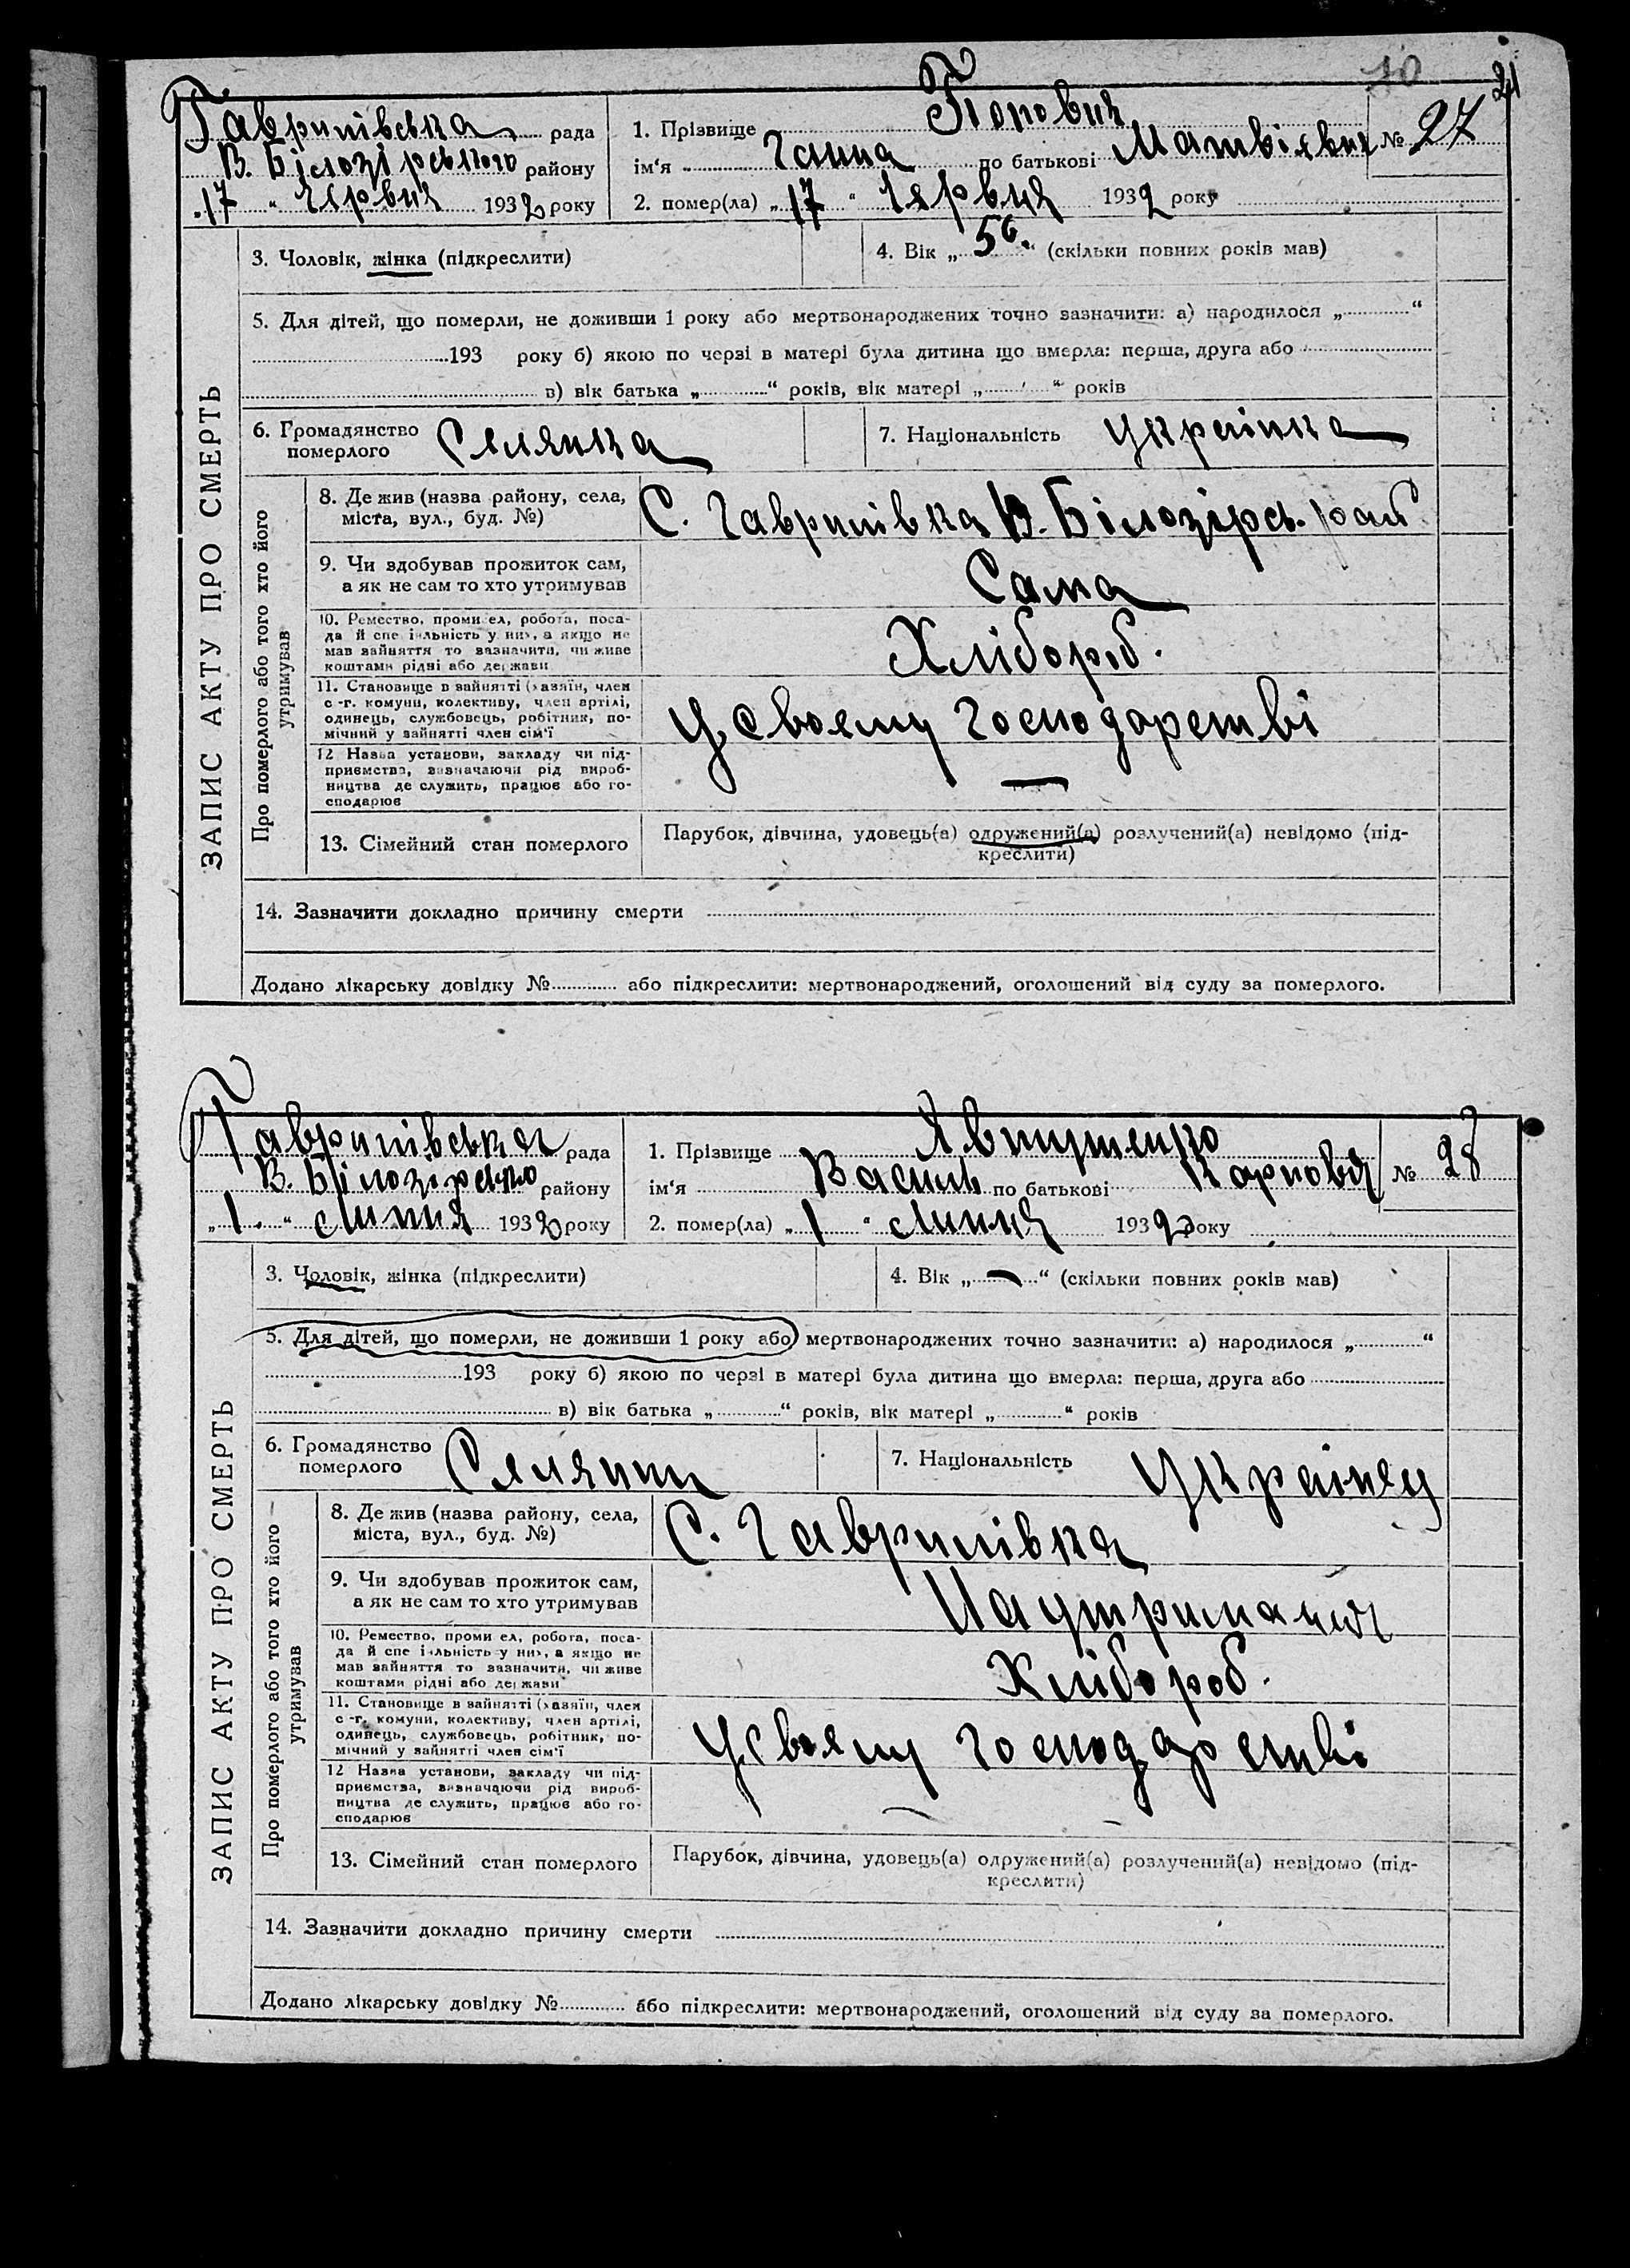 10
21
Гаврилівська рада
В. Білозірського району
„17“ Червня 1932 року
1. Прізвище Попович
ім‘я Ганна по батькові Матвієвна
2. помер(ла) „17“ Червня 1932 року
№ 27
3. Чоловік, жінка (підкреслити)
4. Вік „56.“ (скільки повних років мав)
5. Для дітей, що померли, не доживши 1 року або мертвонароджених точно зазначити: а) народилося „............“
193 року б) якою по черзі в матері була дитина що вмерла: перша, друга або
в) вік батька „............“ років, вік матері „............“ років
6. Громадянство померлого Селянка
7. Національність Українка
ЗАПИС АКТУ ПРО СМЕРТЬ
Про померлого або того хто його утримував
8. Де жив (назва району, села,
міста, вул., буд. №)
С. Гаврилівка В. Білозірсь. рай
9. Чи здобував прожиток сам,
а як не сам то хто утримував
Сама
10. Ремество, промисел, робота, поса-
да й спеціяльність у них, а якщо не
мав зайняття то зазначити, чи живе
коштами рідні або держави
Хлібороб.
11. Становище в зайнятті (хазяїн, член
с.-г. комуни, колективу, член артілі,
одинець, службовець, робітник, по-
мічний у зайнятті член сім‘ї
У своєму господарстві
12 Назва установи, закладу чи під-
приємства, зазначаючи рід вироб-
ництва де служить, працює або го-
сподарює
—
13. Сімейний стан померлого
Парубок, дівчина, удовець(а) одружений(а) розлучений(а) невідомо (під-
креслити)
14. Зазначити докладно причину смерти
Додано лікарську довідку №............ або підкреслити: мертвонароджений, оголошений від суду за померлого.
Гаврилівська рада
В. Білозірсько району
„1.“ Липня 1932 року
1. Прізвище Явтушенко
ім‘я Василь по батькові Карпович
2. помер(ла) „1“ Липня 1932 року
№ 28
3. Чоловік, жінка (підкреслити)
4. Вік „—“ (скільки повних років мав)
5. Для дітей, що померли, не доживши 1 року або мертвонароджених точно зазначити: а) народилося „............“
193 року б) якою по черзі в матері була дитина що вмерла: перша, друга або
в) вік батька „............“ років, вік матері „............“ років
6. Громадянство померлого Селянин
7. Національність Українец
ЗАПИС АКТУ ПРО СМЕРТЬ
Про померлого або того хто його утримував
8. Де жив (назва району, села,
міста, вул., буд. №)
С. Гаврилівка
9. Чи здобував прожиток сам,
а як не сам то хто утримував
На утриманні
10. Ремество, промисел, робота, поса-
да й спеціяльність у них, а якщо не
мав зайняття то зазначити, чи живе
коштами рідні або держави
Хлібороб.
11. Становище в зайнятті (хазяїн, член
с.-г. комуни, колективу, член артілі,
одинець, службовець, робітник, по-
мічний у зайнятті член сім‘ї
У своєму господарстві
12 Назва установи, закладу чи під-
приємства, зазначаючи рід вироб-
ництва де служить, працює або го-
сподарює
13. Сімейний стан померлого
Парубок, дівчина, удовець(а) одружений(а) розлучений(а) невідомо (під-
креслити)
14. Зазначити докладно причину смерти
Додано лікарську довідку №............ або підкреслити: мертвонароджений, оголошений від суду за померлого.